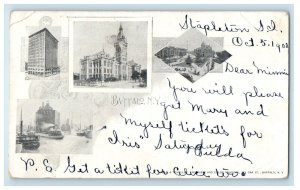 Stapleton Id.
Oct. 5, 190
Dear Minnie
You will please
get Mary and
BUFFALO, N.Y.
Myself tickets for
"Iris" Saturday
Hulda
P. S. Get a ticket for Alice too
BUFFALO, N.Y.